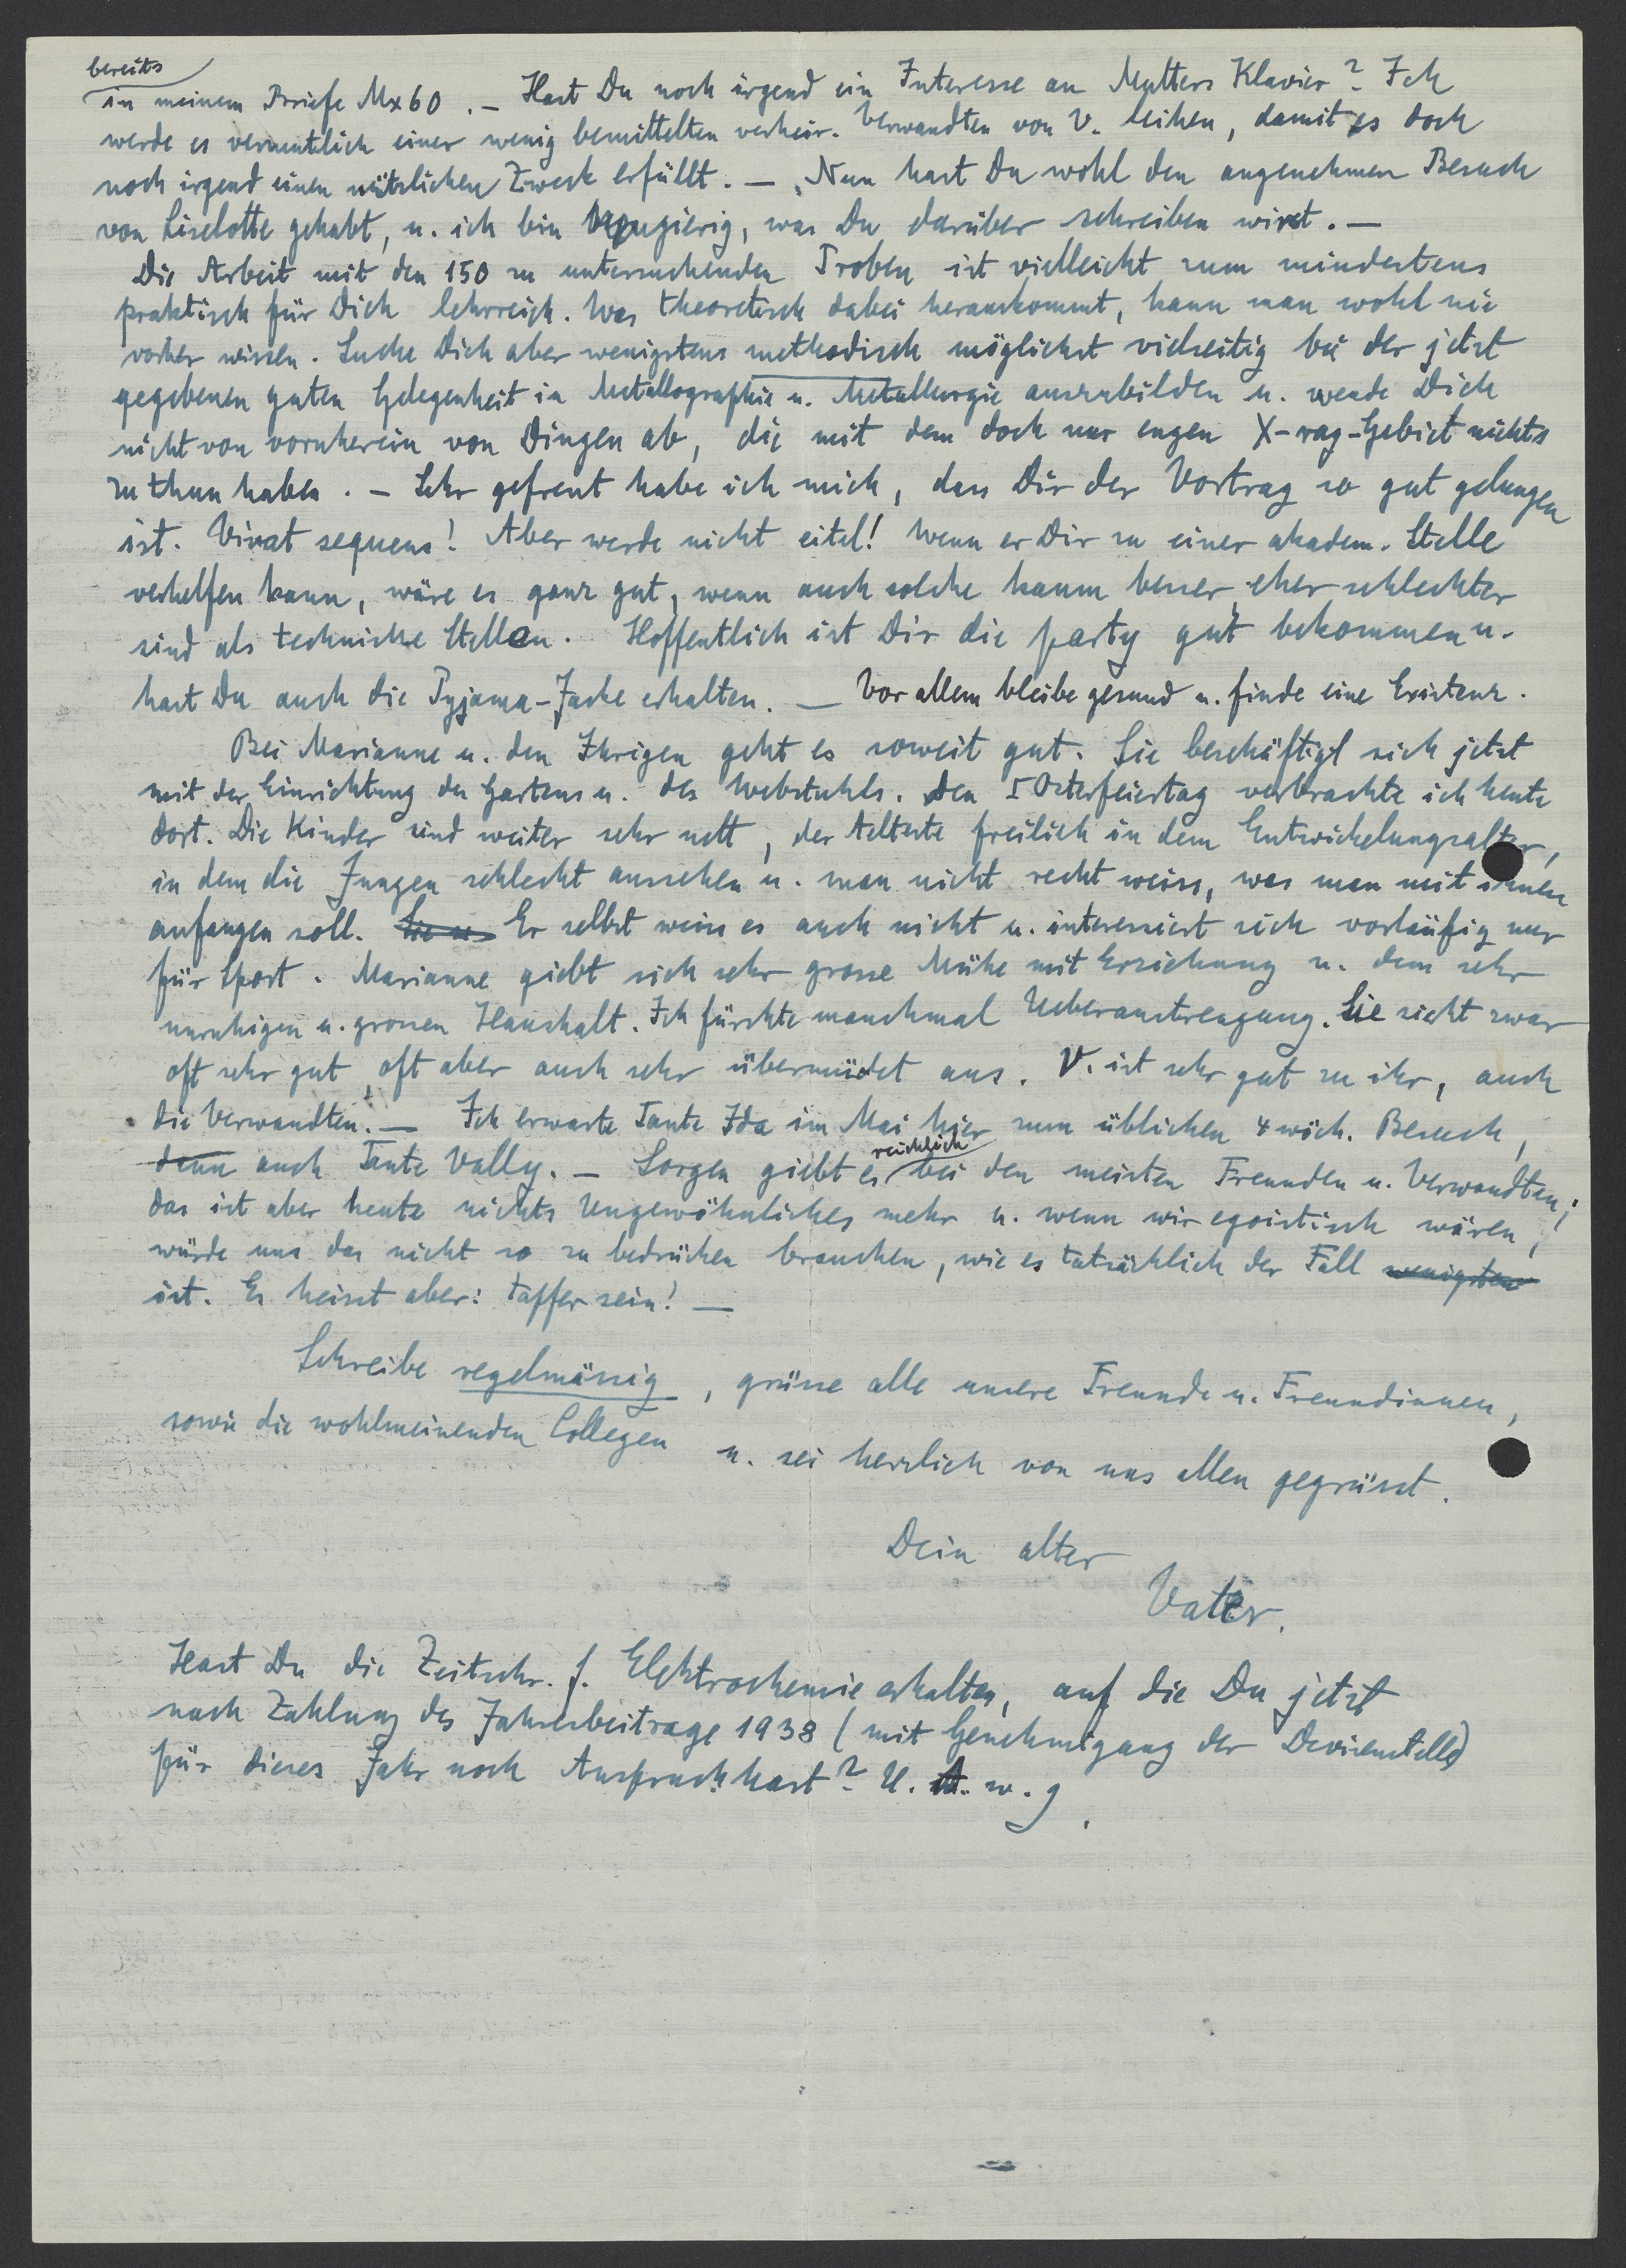 bereits
in meinem Briefe Mx60. – Hast Du noch irgend ein Interesse an Mutters Klavier? Ich
werde es vermutlich einer wenig bemittelten verheir. Verwandten von V. leihen, damit es doch
noch irgend einen nützlichen Zweck erfüllt. – Nun hast Du wohl den angenehmen Besuch
von Liselotte gehabt, u. ich bin neugierig, was Du darüber schreiben wirst. –
Die Arbeit mit den 150 zu untersuchenden Proben ist vielleicht zum mindestens
praktisch für Dich lehrreich. Was theoretisch dabei herauskommt, kann man wohl nie
vorher wissen. Suche Dich aber wenigstens methodisch möglichst vielseitig bei der jetzt
gegebenen guten Gelegenheit in Metallographie u. Metallurgie auszubilden u. wende Dich
nicht von vornherein von Dingen ab, die mit dem doch nur engen X-ray-Gebiet nichts
zu thun haben. – Sehr gefreut habe ich mich, dass Dir der Vortrag so gut gelungen
ist. Vivat sequens! Aber werde nicht eitel! Wenn er Dir zu einer akadem. Stelle
verhelfen kann, wäre es ganz gut, wenn auch solche kaum besser eher schlechter
sind als technische Stellen. Hoffentlich ist Dir die party gut bekommen u.
hast Du auch die Pyjama-Jacke erhalten. – Vor allem bleibe gesund u. finde eine Existenz.
Bei Marianne u. den Ihrigen geht es soweit gut. Sie beschäftigt sich jetzt
mit der Einrichtung des Gartens u. des Webstuhls. Den I Osterfeiertag verbrachte ich heute
dort. Die Kinder sind weiter sehr nett, der Aelteste freilich in dem Entwickelungsalter,
in dem die Jungen schlecht aussehen u. man nicht recht weiss, was man mit ihnen
anfangen soll. Er selbst weiss es auch nicht u. interessiert sich vorläufig nur
für Sport. Marianne giebt sich sehr grosse Mühe mit Erziehung u. dem sehr
unruhigen u. grossen Haushalt. Ich fürchte manchmal Ueberanstrengung. Sie sieht zwar
oft sehr gut, oft aber auch sehr übermüdet aus. V. ist sehr gut zu ihr, auch
die Verwandten. – Ich erwarte Tante Ida im Mai hier zum üblichen 4 wöch. Besuch,
dann auch Tante Vally. – Sorgen giebt es reichlich bei den meisten Freunden u. Verwandten;
das ist aber heute nichts Ungewöhnliches mehr u. wenn wir egoistisch wären,
würde uns das nicht so zu bedrücken brauchen, wie es tatsächlich der Fall wenigstens
ist. Es heisst aber: tapfer sein! –
Schreibe regelmässig, grüsse alle unsere Freunde u. Freundinnen,
sowie die wohlmeinenden Collegen u. sei herzlich von uns allen gegrüsst.
Dein alter
Vater.
Hast Du die Zeitschr. f. Elektrochemie erhalten, auf die Du jetzt
nach Zahlung des Jahresbeitrags 1938 (mit Genehmigung der Devisenstelle)
für dieses Jahr noch Anspruch hast? U. A. w. g.